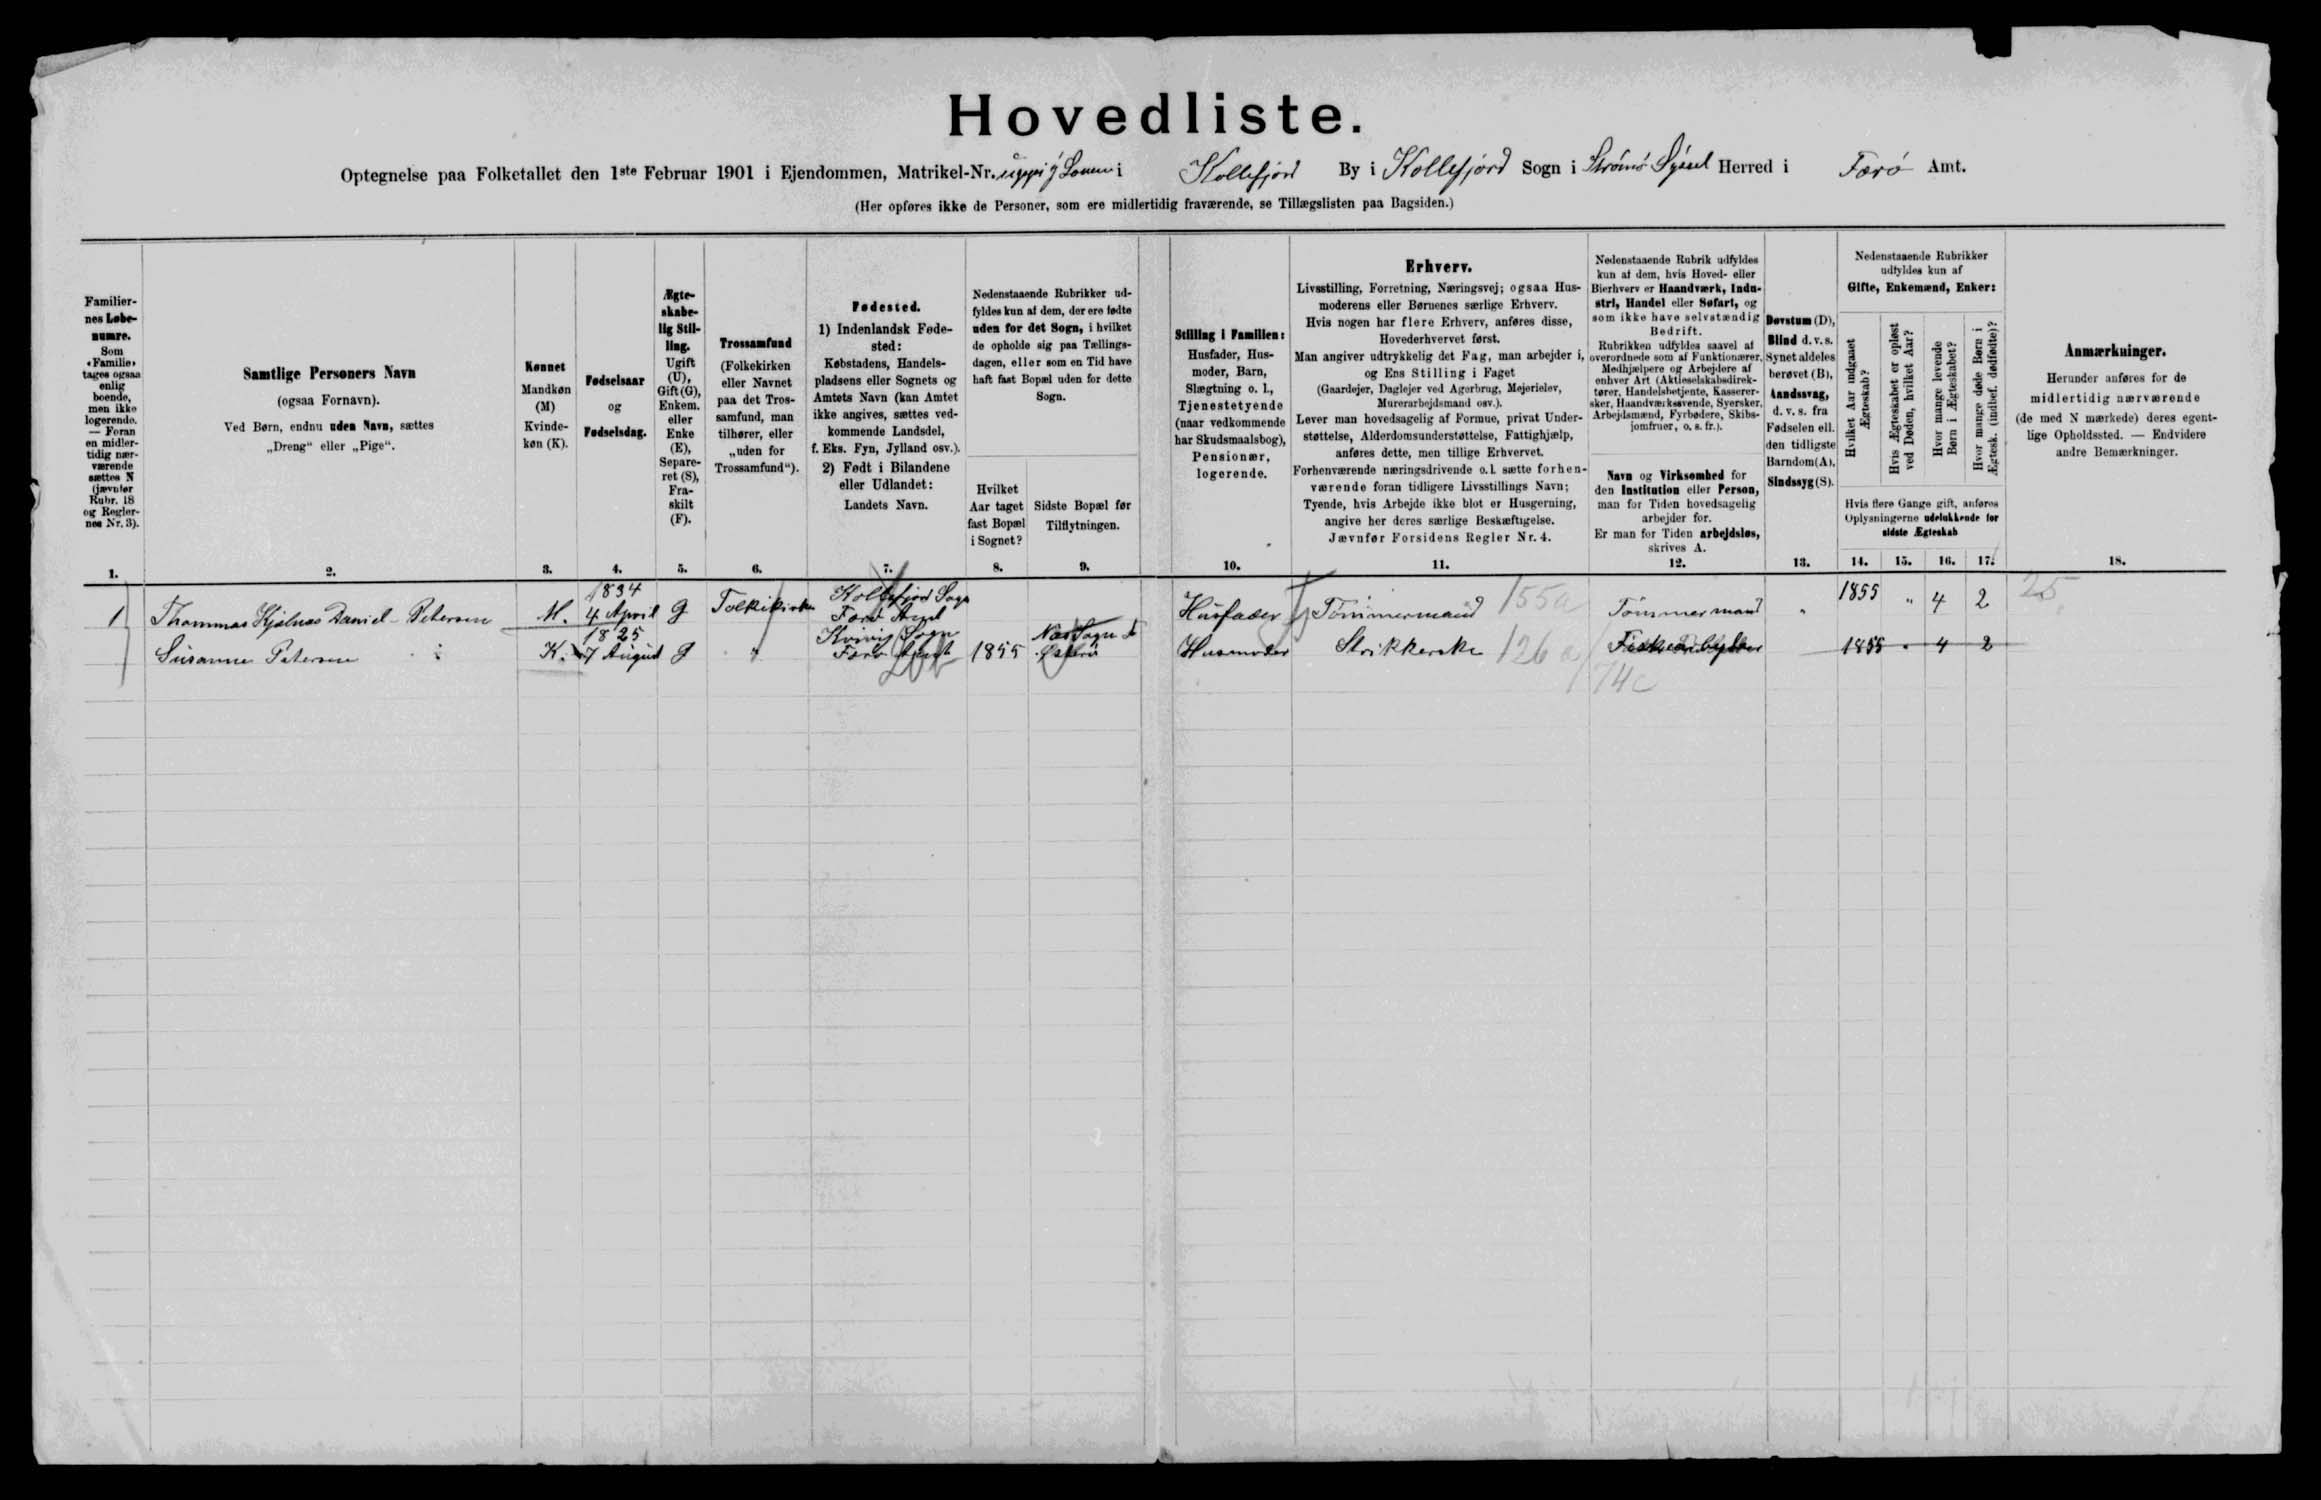 Hovedliste.
Optegnelse paa Folketallet den 1ste Februar 1901 i Ejendommen, Matrikel-Nr. i Kollefjord By i Kollefjord Sogn i Strømø Syssel Herred i Færø Amt.
(Her opføres ikke de Personer, som ere midlertidig fraværende, se Tillægslisten paa Bagsiden.)
Familier-
nes Løbe-
numre.
Som
«Familie»
tages ogsaa
enlig
boende,
men ikke
logerende.
— Foran
en midler-
tidig nær-
værende
sættes N
(jævnfør
Rubr. 18
og Regler-
nes Nr. 3).
1.
Samtlige Personers Navn
(ogsaa Fornavn).
Ved Børn, endnu uden Navn, sættes
„Dreng“ eller „Pige“.
2.
Kønnet
Mandkøn
(M)
Kvinde-
køn (K).
3.
Fødselsaar
og
Fødselsdag.
4.
Ægte-
skabe-
lig Stil-
ling.
Ugift
(U),
Gift (G),
Enkem.
eller
Enke
(E),
Separe-
ret (S),
Fra-
skilt
(F).
5.
Trossamfund
(Folkekirken
eller Navnet
paa det Tros-
samfund, man
tilhører, eller
„uden for
Trossamfund“).
6.
Fødested.
1) Indenlandsk Føde-
sted:
Købstadens, Handels-
pladsens eller Sognets og
Amtets Navn (kan Amtet
ikke angives, sættes ved-
kommende Landsdel,
f. Eks. Fyn, Jylland osv.).
2) Født i Bilandene
eller Udlandet:
Landets Navn.
7.
Nedenstaaende Rubrikker ud-
fyldes kun af dem, der ere fødte
uden for det Sogn, i hvilket
de opholde sig paa Tællings-
dagen, eller som en Tid have
haft fast Bopæl uden for dette
Sogn.
Hvilket
Aar taget
fast Bopæl
i Sognet?
8.
Sidste Bopæl før
Tilflytningen.
9.
Stilling i Familien:
Husfader, Hus-
moder, Barn,
Slægtning o. l.,
Tjenestetyende
(naar vedkommende
har Skudsmaalsbog),
Pensionær,
logerende.
10.
Erhverv.
Livsstilling, Forretning, Næringsvej; ogsaa Hus-
moderens eller Børnenes særlige Erhverv.
Hvis nogen har flere Erhverv, anføres disse,
Hovederhvervet først.
Man angiver udtrykkelig det Fag, man arbejder i,
og Ens Stilling i Faget
(Gaardejer, Daglejer ved Agerbrug, Mejerielev,
Murerarbejdsmand osv.).
Lever man hovedsagelig af Formue, privat Under-
støttelse, Alderdomsunderstøttelse, Fattighjælp,
anføres dette, men tillige Erhvervet.
Forhenværende næringsdrivende o. l. sætte forhen-
værende foran tidligere Livsstillings Navn;
Tyende, hvis Arbejde ikke blot er Husgerning,
angive her deres særlige Beskæftigelse.
Jævnfør Forsidens Regler Nr. 4.
11.
Nedenstaaende Rubrik udfyldes
kun af dem, hvis Hoved- eller
Bierhverv er Haandværk, Indu-
stri, Handel eller Søfart, og
som ikke have selvstændig
Bedrift.
Rubrikken udfyldes saavel af
overordnede som af Funktionærer,
Medhjælpere og Arbejdere af
enhver Art (Aktieselskabsdirek-
tører, Handelsbetjente, Kasserer-
sker, Haandværkssvende, Syersker,
Arbejdsmænd, Fyrbødere, Skibs-
jomfruer, o. s. fr.).
Navn og Virksomhed for
den Institution eller Person,
man for Tiden hovedsagelig
arbejder for.
Er man for Tiden arbejdsløs,
skrives A.
12.
Døvstum (D),
Blind d. v. s.
Synet aldeles
berøvet (B),
Aandssvag,
d. v. s. fra
Fødselen ell.
den tidligste
Barndom (A),
Sindssyg (S).
13.
Nedenstaaende Rubrikker
udfyldes kun af
Gifte, Enkemænd, Enker:
Hvilket Aar indgaaet
Ægteskab?
Hvis Ægteskabet er opløst
ved Døden, hvilket Aar?
Hvor mange levende
Børn i Ægteskabet?
Hvor mange døde Børn i
Ægtesk. (indbef. dødfødte)?
Hvis flere Gange gift, anføres
Oplysningerne udelukkende for
sidste Ægteskab
14. 15. 16. 17.
Anmærkninger.
Herunder anføres for de
midlertidig nærværende
(de med N mærkede) deres egent-
lige Opholdssted. — Endvidere
andre Bemærkninger.
18.
1 Thommas Kjølnæs Daniel Petersen M. 1834 4 April G Folkikirke Kollefjord Sogn Færø Husfader Tømmermand 155a Tømmermand " 1855 " 4 2 25
Susanne Petersen K. 1825 7 August G " Kvivig Sogn Færø Amt 1855 Næs Sogn Østerø Husmoder Strikkerske 126a 1855 " 4 2
74c